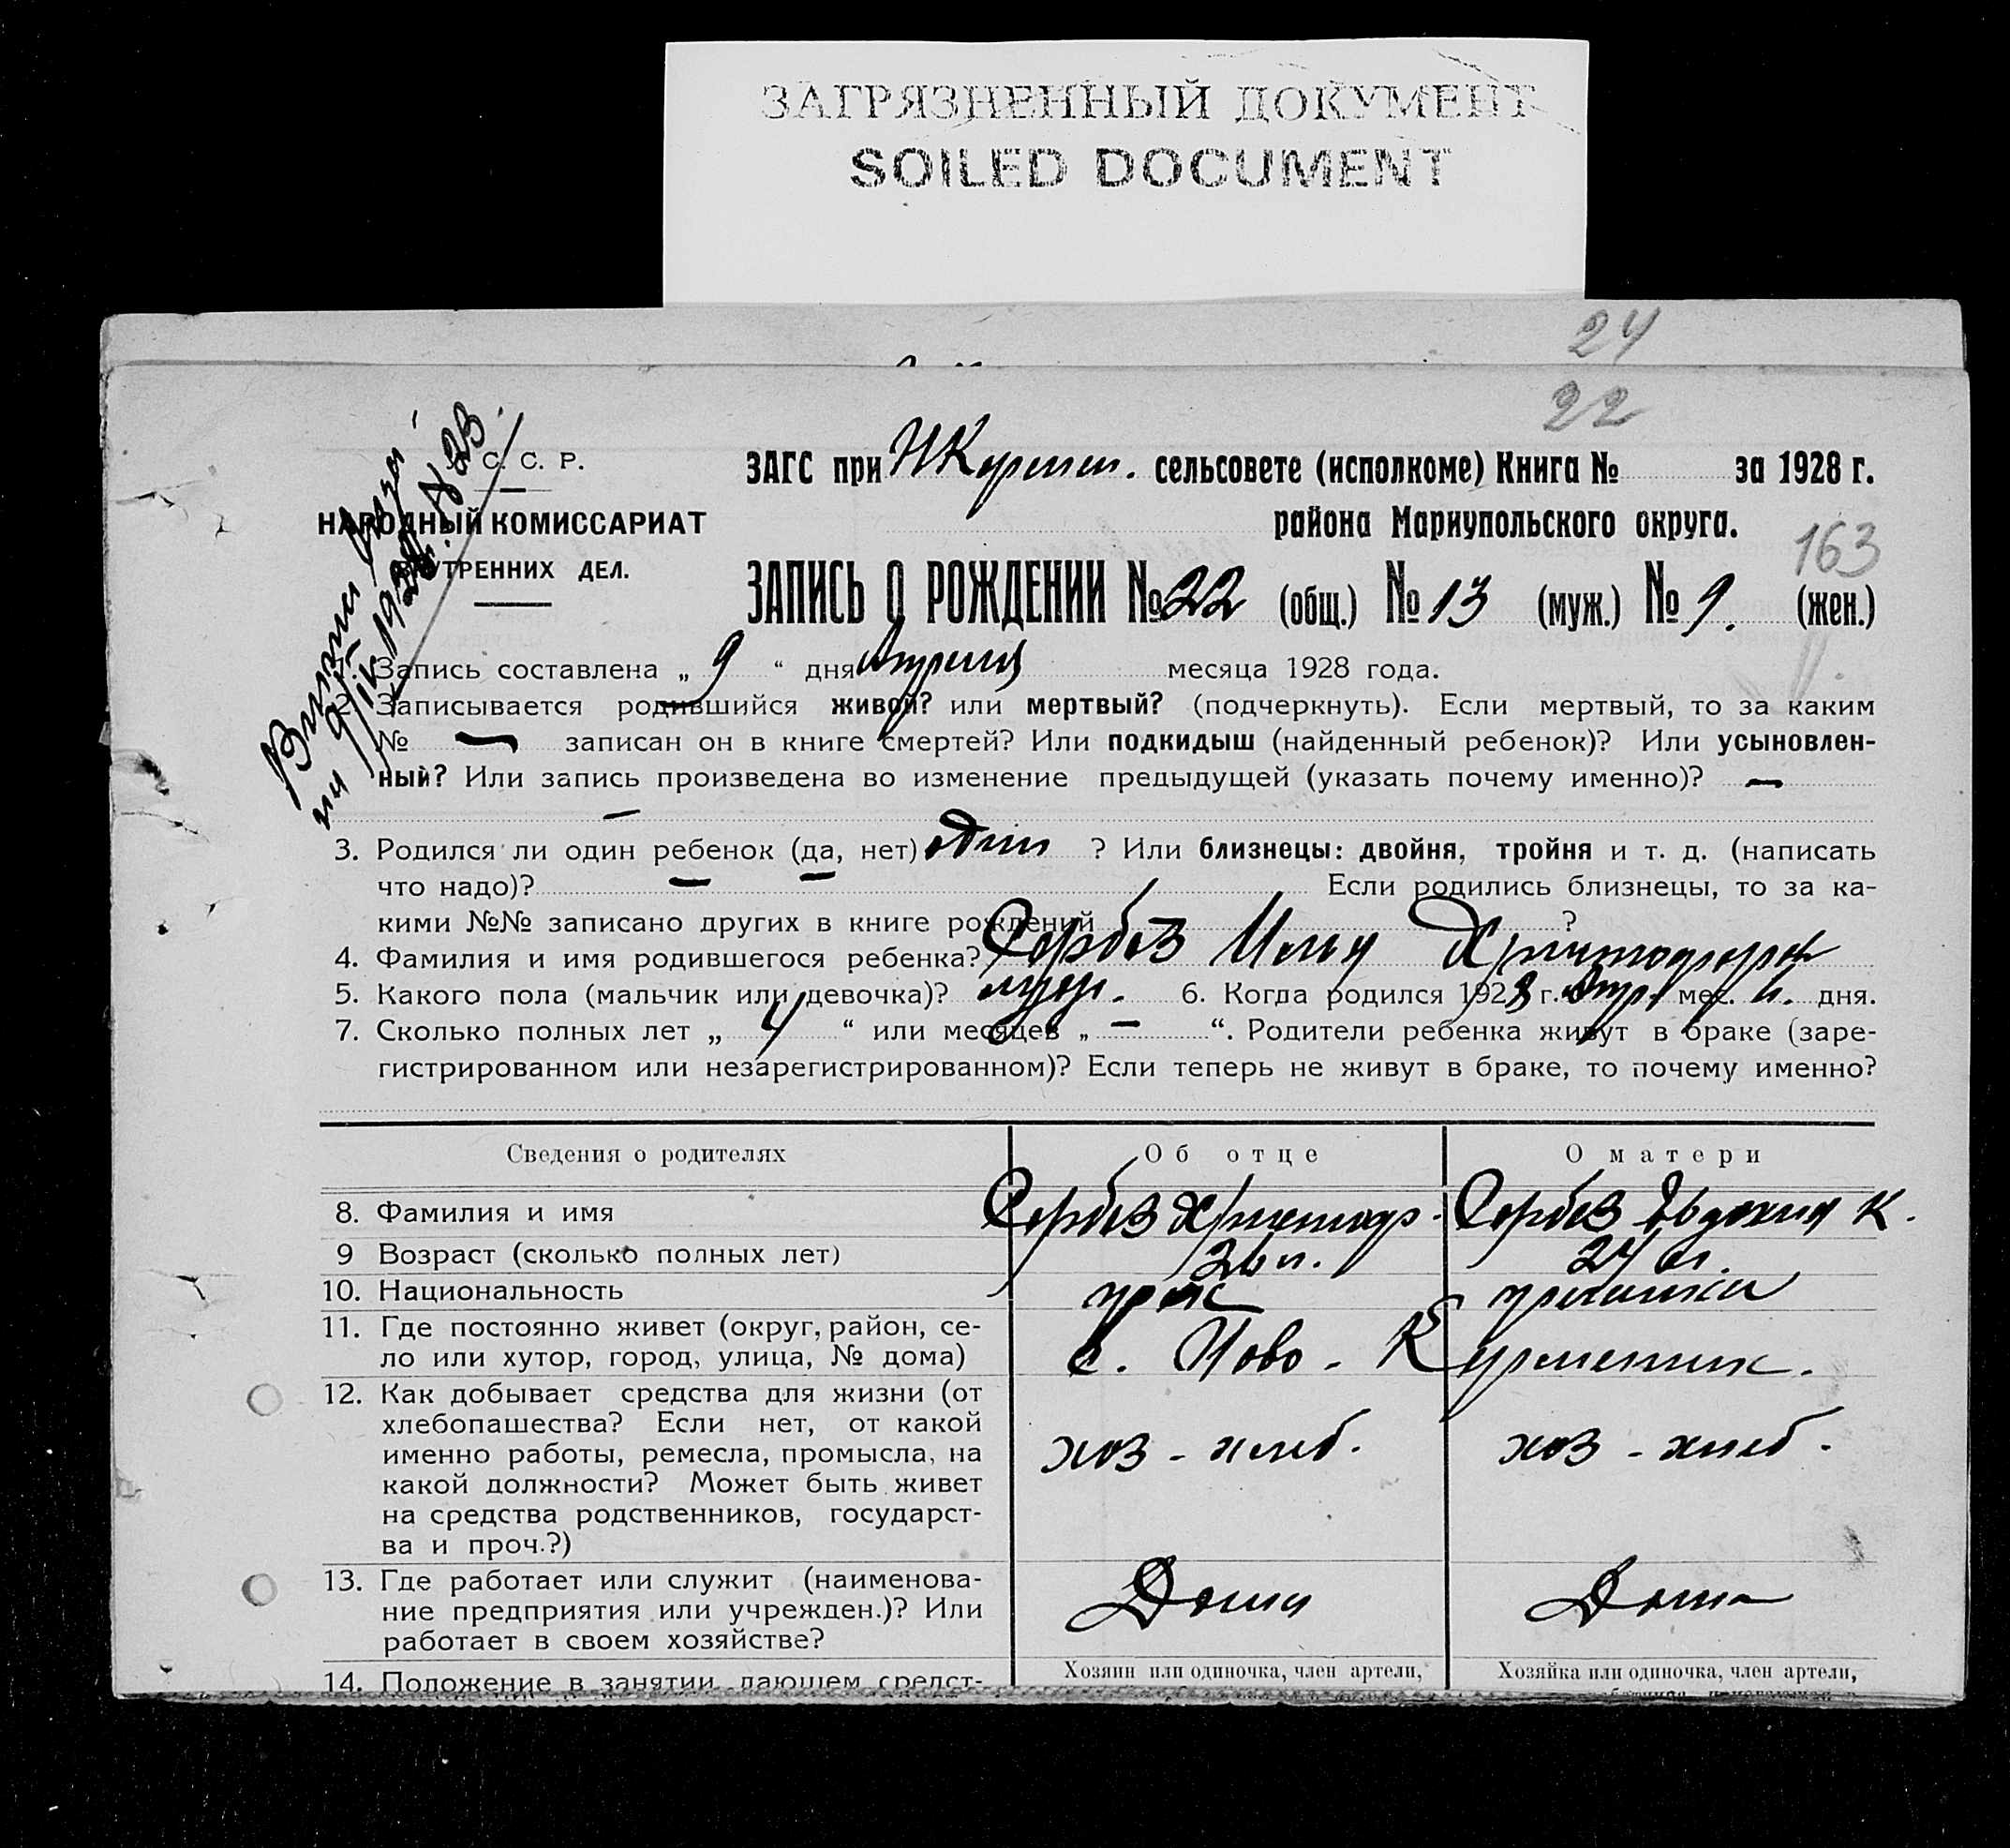 ЗАГРЯЗНЕННЫЙ ДОКУМЕНТ
SOILED DOCUMENT
24
22
С. С. Р.
НАРОДНЫЙ КОМИССАРИАТ
ВНУТРЕННИХ ДЕЛ.
ЗАГС при сельсовете (исполкоме) Книга № за 1928 г.
района Мариупольского округа.
163
ЗАПИСЬ О РОЖДЕНИИ № 22 (общ.) № 13 (муж.) № 9. (жен.)
Запись составлена „ 9 “ дня Апреля месяца 1928 года.
2. Записывается родившийся живой? или мертвый? (подчеркнуть). Если мертвый, то за каким
№ — записан он в книге смертей? Или подкидыш (найденный ребенок)? Или усыновлен-
ный? Или запись произведена во изменение предыдущей (указать почему именно)? —
—
3. Родился ли один ребенок (да, нет) один ? Или близнецы: двойня, тройня и т. д. (написать
что надо)? — — Если родились близнецы, то за ка-
кими №№ записано других в книге рождений ?
4. Фамилия и имя родившегося ребенка? Сербов Илья
5. Какого пола (мальчик или девочка)? муж. 6. Когда родился 1928 г. Апр. мес. дня.
7. Сколько полных лет „ “ или месяцев „ — “. Родители ребенка живут в браке (заре-
гистрированном или незарегистрированном)? Если теперь не живут в браке, то почему именно?
Сведения о родителях Об отце О матери
8. Фамилия и имя Сербов Христофор. Сербов Евдокия К.
9 Возраст (сколько полных лет) 26 л. 24 л.
10. Национальность грек гречанка
11. Где постоянно живет (округ, район, се-
ло или хутор, город, улица, № дома) с. Ново-
12. Как добывает средства для жизни (от
хлебопашества? Если нет, от какой
именно работы, ремесла, промысла, на
какой должности? Может быть живет
на средства родственников, государст-
ва и проч.?)
хоз - хлеб. хоз - хлеб.
13. Где работает или служит (наименова-
ние предприятия или учрежден.)? Или
работает в своем хозяйстве?
Дома Дома
14. Положение в занятии, дающем средст-
Хозяин или одиночка, член артели, Хозяйка или одиночка, член артели,